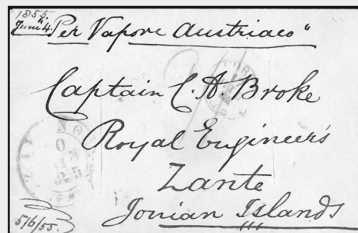 1855
June 4.
"Per Vapore Austriaco"
Captain C. A. Broke
Royal Engineers
Zante
Ionian Islands
5/6/55.